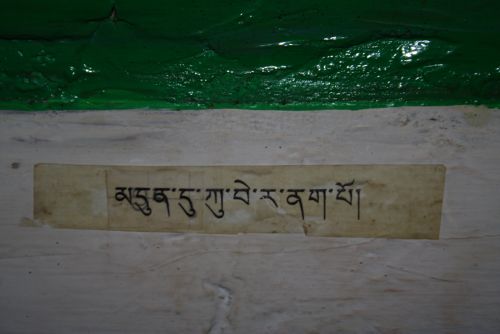 མདུན་དུ་ཀུ་བེ་ར་ནག་པོ།